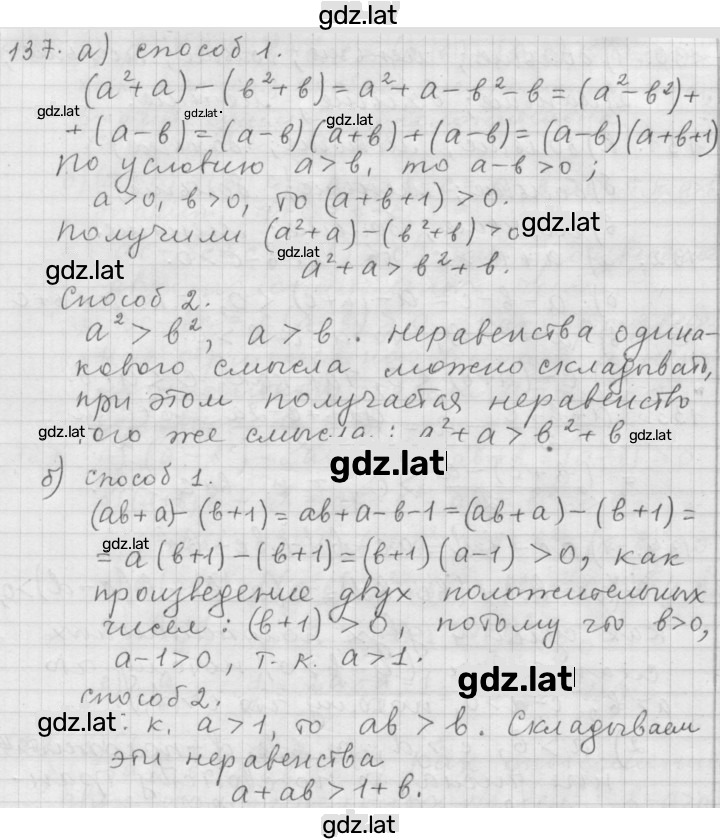 gdz.lat
137. а) способ 1.
(a²+a) – (в²+в) = a²+a – в² – в = (a² – в²) +
gdz.lat gdz.lat gdz.lat
+ (a – в) = (a – в) (a+в) + (a – в) = (a – в) (a+в+1)
По условию a > в, то a – в > 0 ;
a > 0, в > 0, то (a + в + 1) > 0.
gdz.lat
Получили (a²+a) – (в²+в) > 0
gdz.lat
gdz.lat
a² + a > в² + в.
Способ 2.
a² > в², a > в . неравенства одина-
кового смысла можно складывать,
при этом получается неравенство
gdz.lat того же смысла : a² + a > в² + в gdz.lat
gdz.lat
б) Способ 1.
(aв+a) – (в+1) = aв + a – в – 1 = (aв + a) – (в + 1) =
gdz.lat
= a (в+1) – (в+1) = (в+1) (a – 1) > 0, как
произведение двух положительных
чисел : (в+1) > 0, потому что в > 0,
a – 1 > 0, т. к. a > 1.
gdz.lat
Способ 2.
gdz.lat к. a > 1, то aв > в. Складываем
эти неравенства
a + aв > 1 + в.
gdz.lat